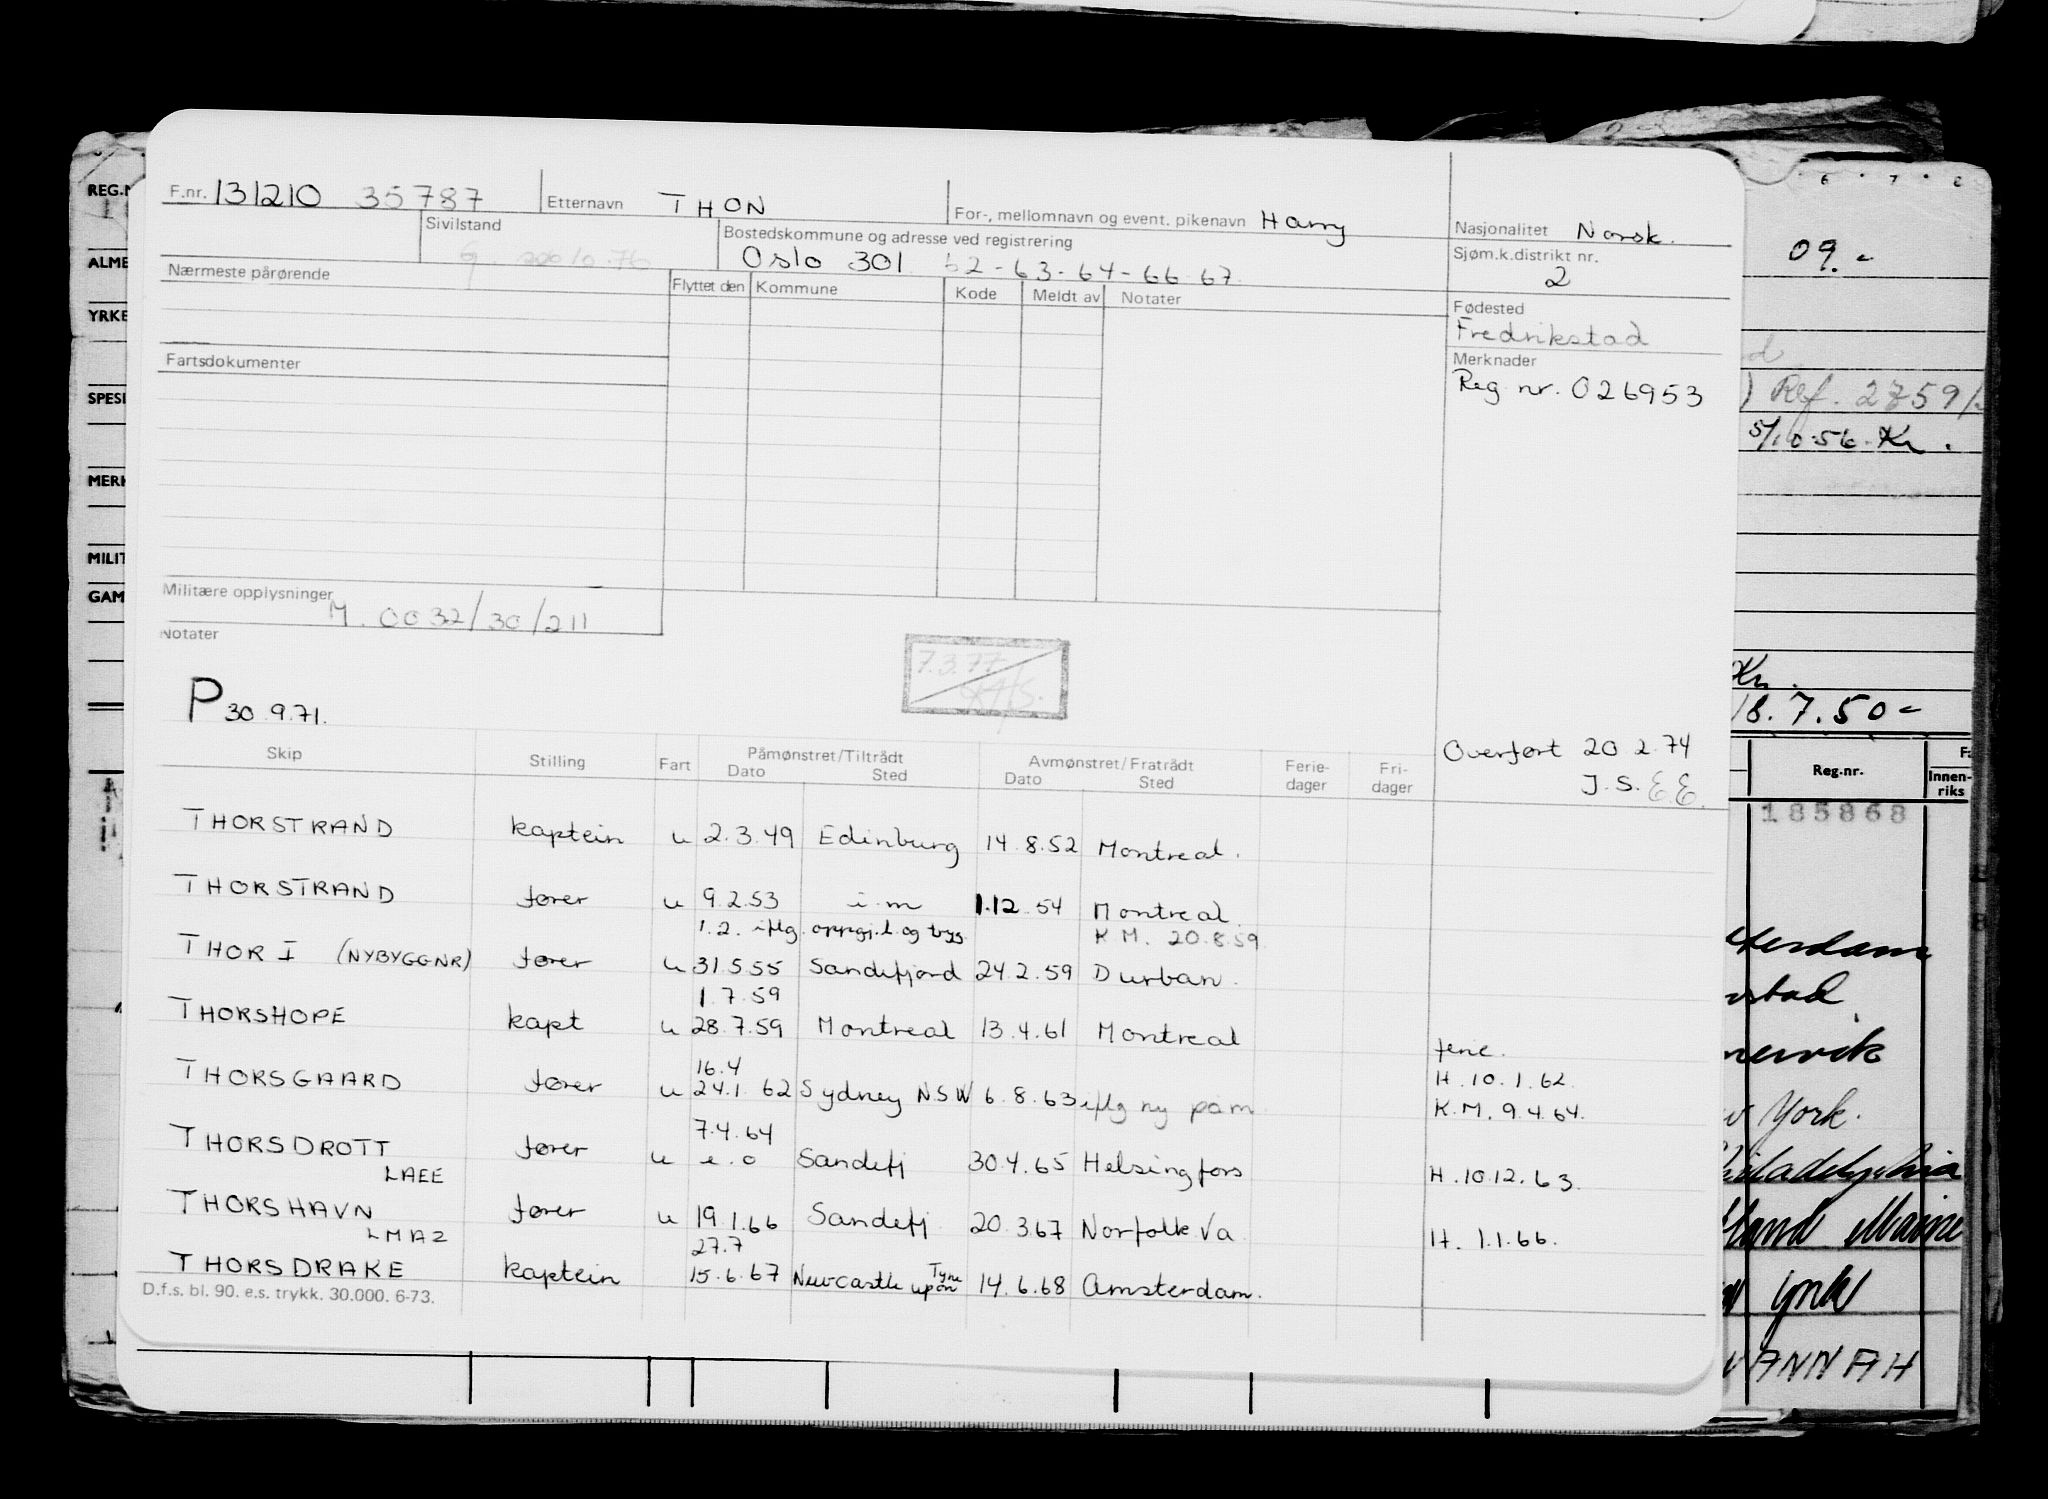 F.nr. 131210 35787 Etternavn THON For-, mellomnavn og event. pikenavn Harry Nasjonalitet Norsk.
Sivilstand
Bostedskommune og adresse ved registrering
Oslo 301 62-63-64-66-67
Sjøm.k.distrikt nr.
2
Nærmeste pårørende
Flyttet den Kommune Kode Meldt av Notater
Fødested
Fredrikstad
Merknader
Reg nr. 026953
Fartsdokumenter
Militære opplysninger
M. 0032/30/211
Notater
7.3.77
P 30.9.71.
Overført 20.2.74
J.S. E.E.
Skip Stilling Fart Påmønstret/Tiltrådt Dato Sted Avmønstret/Fratrådt Dato Sted Ferie-dager Fri-dager
THORSTRAND kaptein u 2.3.49 Edinburg 14.8.52 Montreal.
THORSTRAND fører u 9.2.53 i.m 1.12.54 Montreal.
1.2. iflg. oppgj.l og tygs K.M. 20.8.59
THOR I (NYBYGGNR) fører u 31.5.55 Sandefjord 24.2.59 Durban.
1.7.59
THORSHOPE kapt u 28.7.59 Montreal 13.4.61 Montreal
ferie.
16.4
THORSGAARD fører u 24.1.62 Sydney N.S.W 6.8.63 iflg ny påm H.10.1.62.
K.M. 9.4.64.
7.4.64
THORSDROTT fører u e.o Sandefj 30.4.65 Helsingfors H.10.12.63.
LAEE
THORSHAVN fører u 19.1.66 Sandefj. 20.3.67 Norfolk Va H. 1.1.66.
LMAZ
27.7
THORSDRAKE kaptein 15.6.67 Newcastle upon Tyne 14.6.68 Amsterdam.
D.f.s. bl. 90. e.s. trykk. 30.000. 6-73.
REG.N
ALME
YRKE
SPESI
MERK
MILIT
GAM
6 7 8
09.-
Ref. 2759/
5/10.56. Kr.
Kr.
18.7.50-
Reg.nr.
Innen-
riks
185868
terdam
stad
nervik
York.
Philadelphia
tland Maine
York
VANNAH